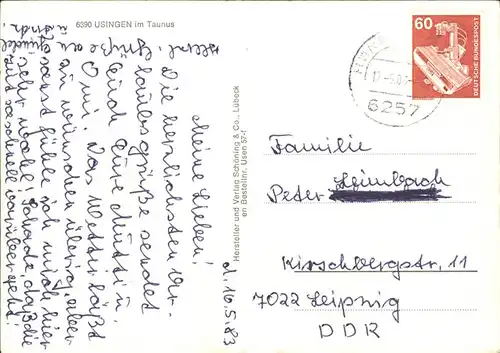 6390 USINGEN im Taunus
d. 16.5.83
Meine Lieben!
Die herzlichsten Ur-
laubsgrüße sendet
Euch Eure Mutti u.
Omi. Das Wetter läßt
zu wünschen übrig, aber
sonst fühle ich mich hier
sehr wohl! Schade, daß die
Zeit so schnell vorüber geht!
Herzl. Grüße an
Hersteller und Verlag Schöning & Co., Lübeck
en Bestellnr. Usen 57-f
60
DEUTSCHE BUNDESPOST
6257
Familie
Peter Leimbach
Kirschbergstr. 11
7022 Leipzig
DDR